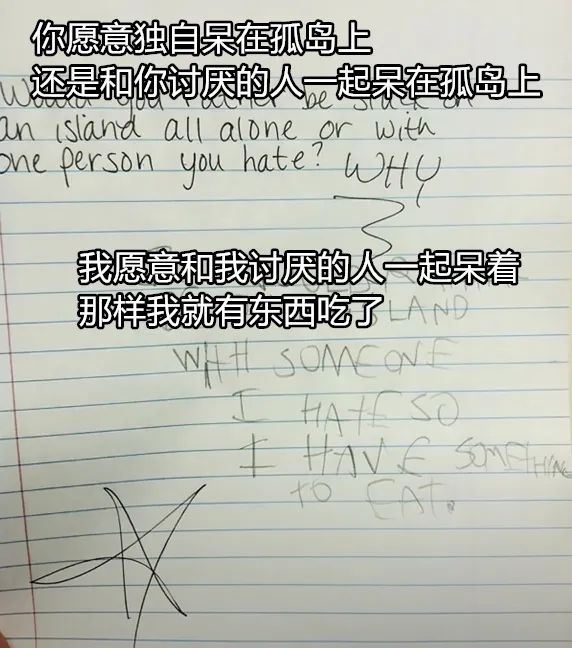 你愿意独自呆在孤岛上
还是和你讨厌的人一起呆在孤岛上
Would you rather be stuck on
an island all alone or with
one person you hate? WHY
我愿意和我讨厌的人一起呆着
那样我就有东西吃了
LAND
WITH SOMEONE
I HATE SO
I HAVE SOMETHING
TO EAT.